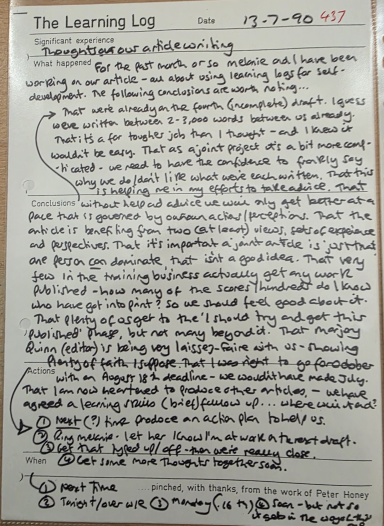 The Learning Log Date 13-7-90 437
Significant experience
Thoughts on our article writing
What happened For the past month or so melanie and I have been
working on our article - all about using learning logs for self-
development. The following conclusions are worth noting...
That we're already on the fourth (incomplete) draft. I guess
we've written between 2-3,000 words between us already.
That it's a far tougher job than I thought - and I knew it
wouldn't be easy. That as a joint project it's a bit more comp-
licated - we need to have the confidence to frankly say
why we do/don't like what we've each written. That this
is helping me in my efforts to take advice. That
Conclusions without help and advice we will only get better at a
pace that is governed by our own action/perceptions. That the
article is benefiting from two (at least) views, sets of experience
and perspectives. That it's important a joint article is just that and
one person can dominate, that isn't a good idea. That very
few in the training business actually get any work
published - how many of the scores/hundred do I know
who have got into print? So we should feel good about it.
That plenty of us get to the 'I should try and get this
published' phase, but not many beyond it. That Marjory
Quinn (editor) is being very laissez-faire with us - showing
plenty of faith I suppose. That I was right to go for October
Actions with an August 18th deadline - we wouldn't have made July.
That I am now heartened to produce other articles - we have
agreed a learning styles (brief) follow up...
① Next (?) time produce an action plan to help us.
② Ring melanie - let her know I'm at work on the next draft.
③ Get that typed up/off - then we're really close.
When ④ Get some more thoughts together soon.
pinched, with thanks, from the work of Peter Honey
① Next time
② Tonight/over w/e ③ Monday (16th) ④ Soon - but not so